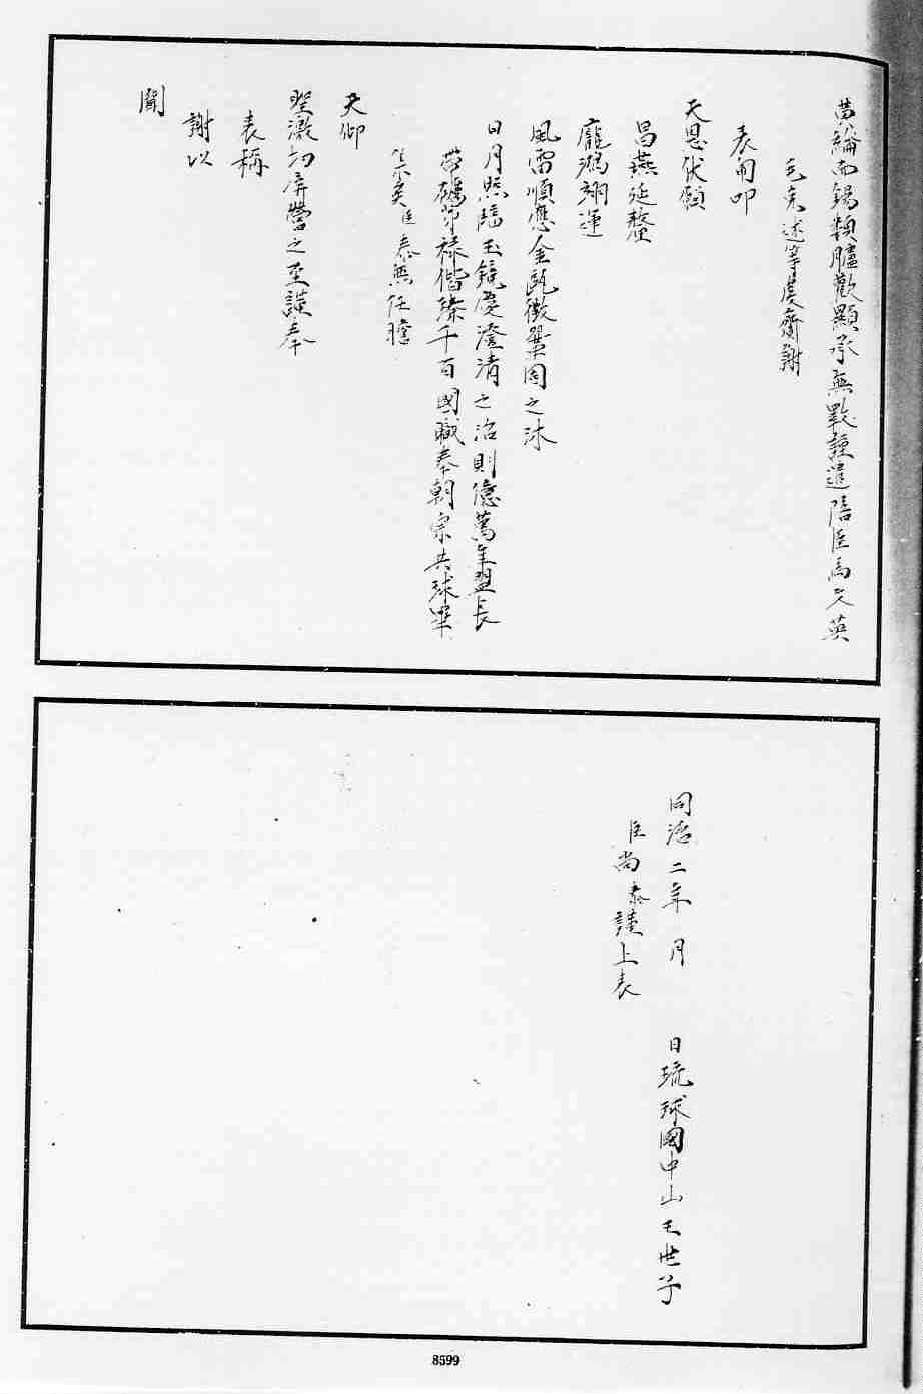 茜綸而錫類臚歡顯承無斁謹遣陪臣馬文英
毛克述等虔齎謝
表朝叩
天恩伏願
昌燕延釐
龐鴻翊運
風雷順應金甌徵鞏固之沐
日月照臨玉鏡慶澄清之治則億萬年盟長
帶礪茅祿偕臻千百國職奉朝宗共球畢
集矣臣泰無任瞻
天仰
聖激切屏營之至謹奉
表稱
謝以
聞
同治二年 月 日琉球國中山王世子
臣尚泰謹上表
8599